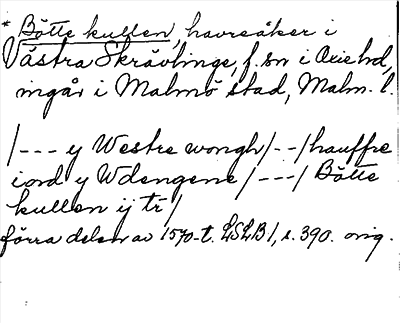 * Bötte kullen, havreåker i
Västra Skrävlinge, f. sn i Oxie hd,
ingår i Malmö stad, Malm. l.
/--- y Westre wongh/--/hauffre
iord y Wdengene/---/ Bötte
kullen ij tr/
förra delen av 1570-t. LSLB 1, s. 390. orig.